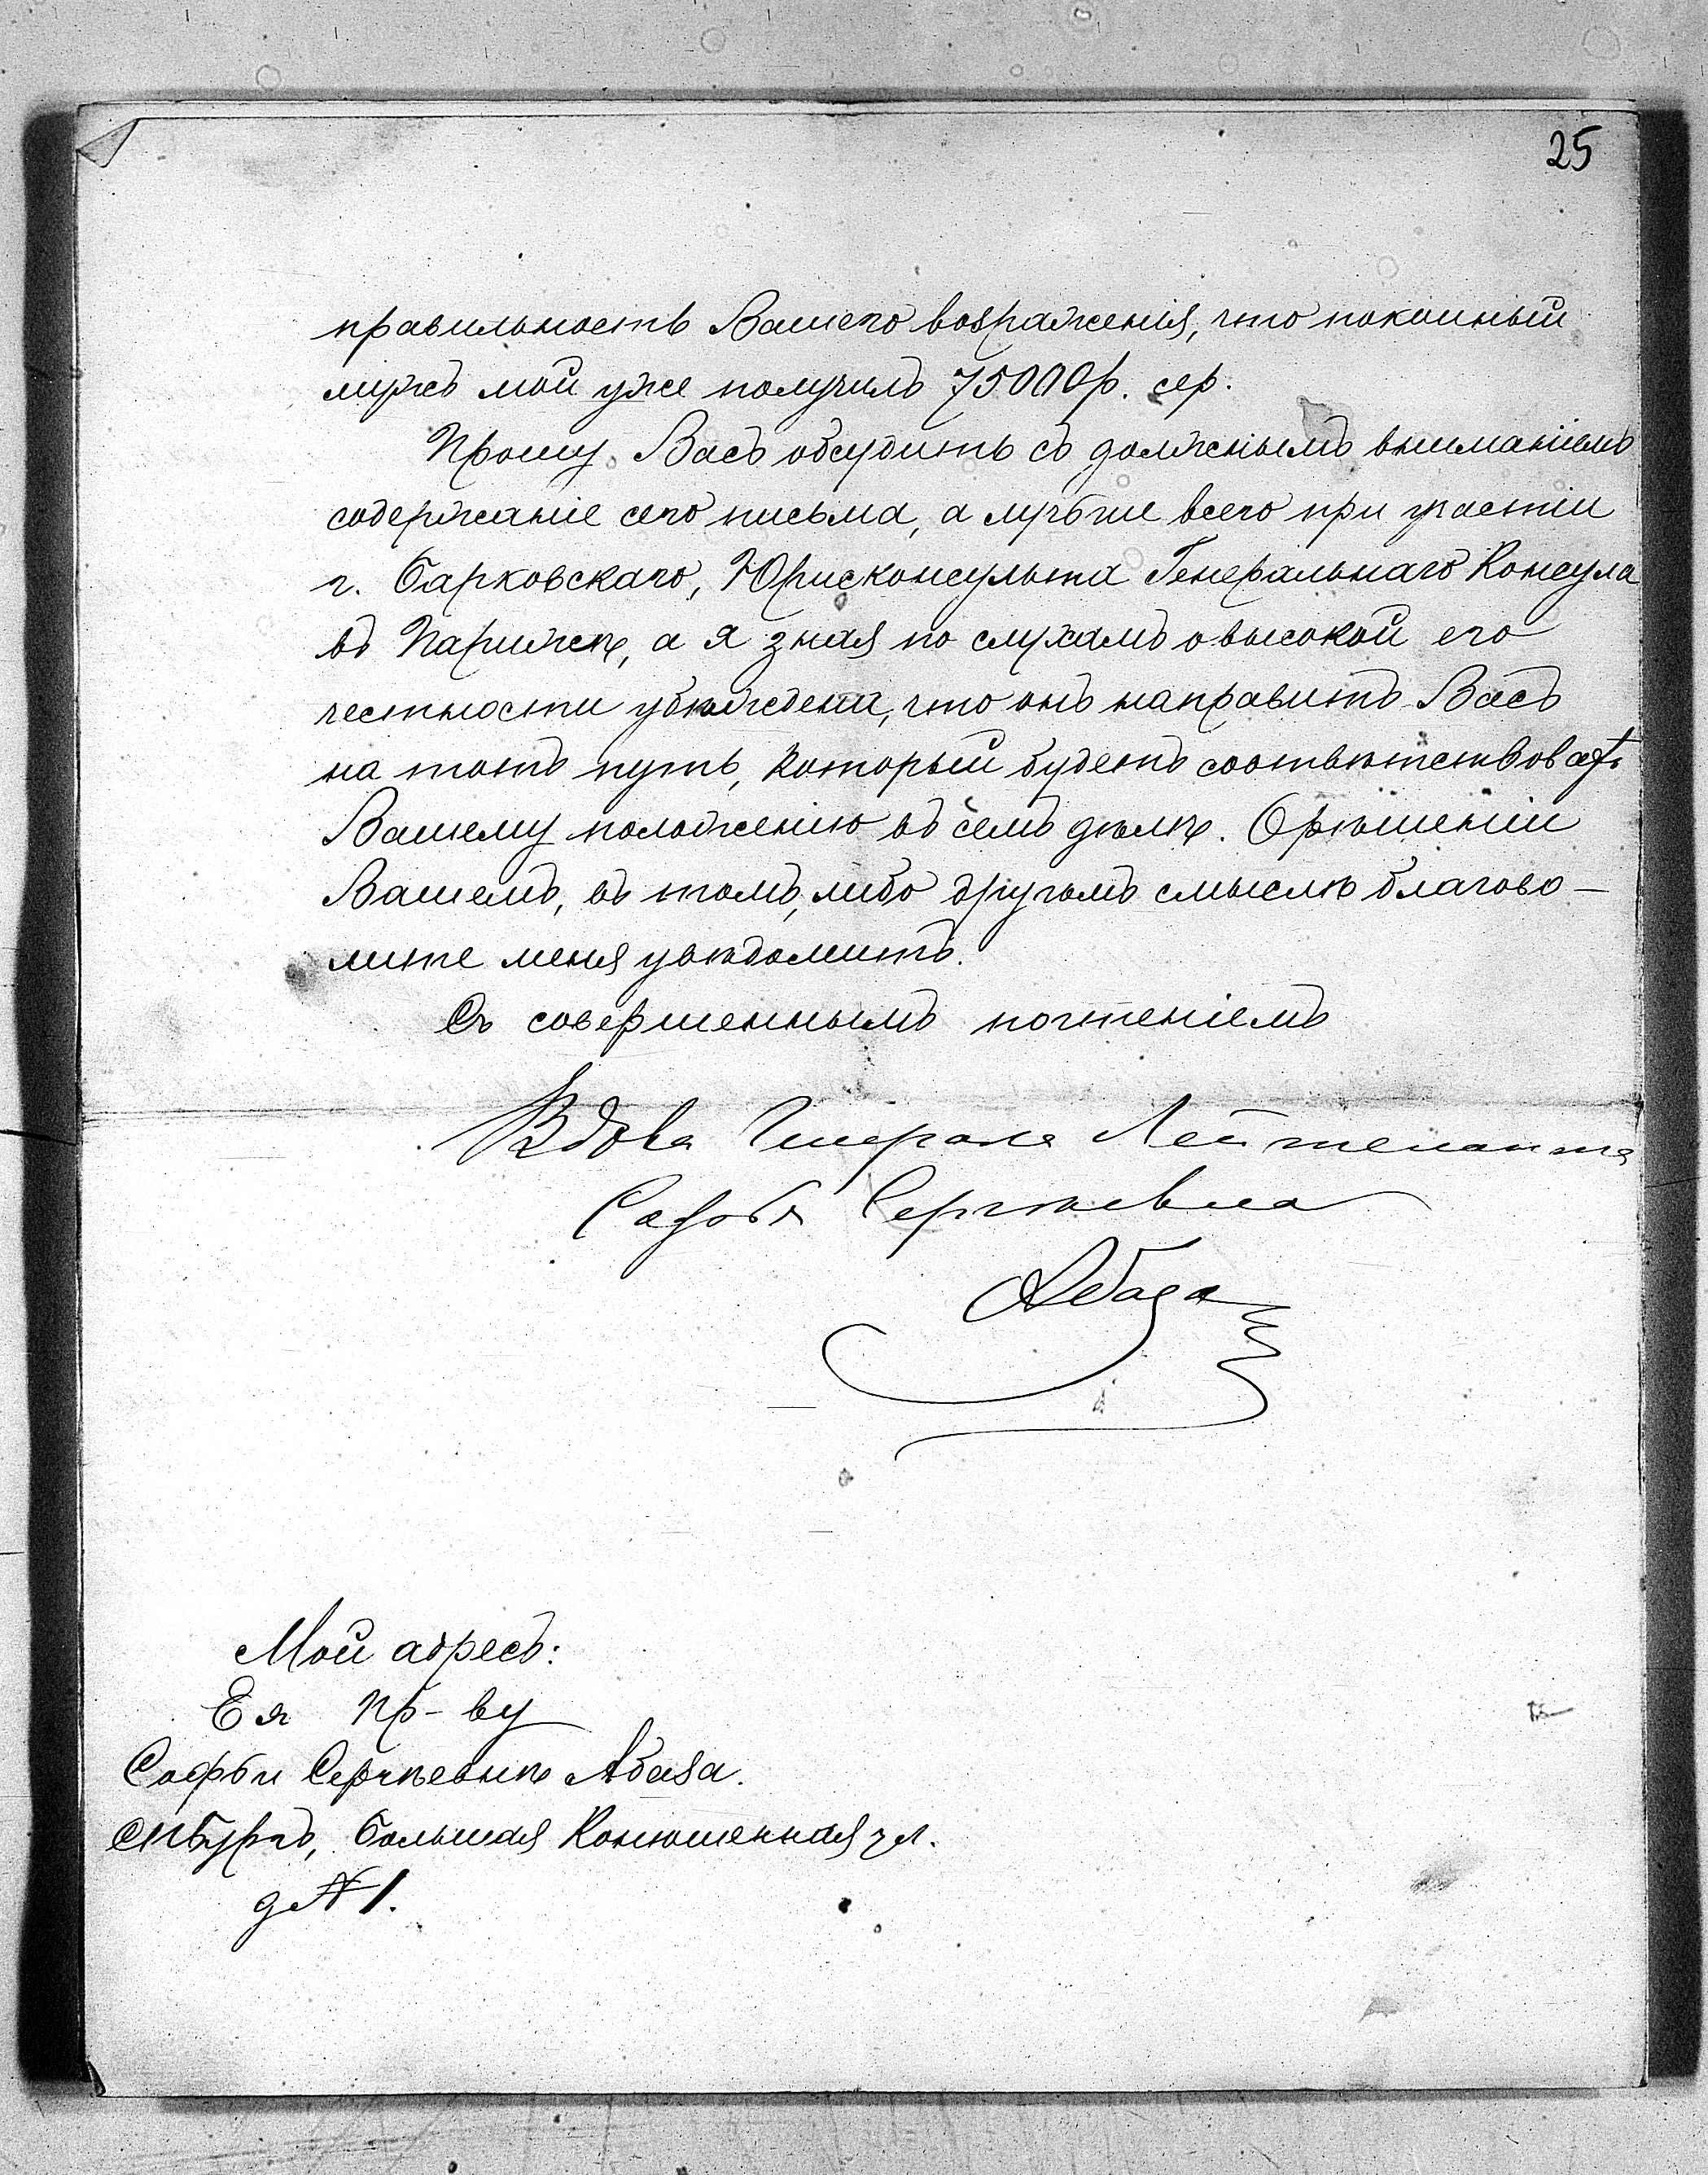 25
правильность Вашего возраженія, что покойный
мужъ мой уже получилъ 75000 р. сер.
Прошу Васъ обсудить съ должнымъ вниманіемъ
содержаніе сего письма, а лучьше всего при участіи
г. Барковскаго, Юрисконсульта Генеральнаго Консула
въ Парижѣ, а я зная по слухамъ о высокой его
честности убѣждена, что онъ направитъ Васъ
на тотъ путь, который будетъ соотвѣтствовать
Вашему положенію въ семъ дѣлѣ. О рѣшеніи
Вашемъ, въ томъ, либо другомъ смыслѣ благово-
лите меня увѣдомить.
Съ совершеннымъ почтеніемъ
Вдова Генерала Лейтенанта
Софья Сергѣевна
Абаза
Мой адресъ:
Ея Пр-ву
Софьи Сергѣевнѣ Абаза.
СПбургъ, Большая Конюшенная ул.
д № 1.